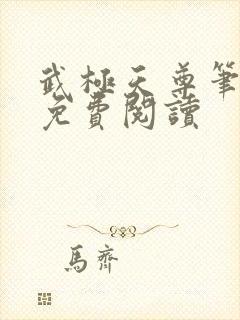 武極天尊筆
免費閱讀
馬齊